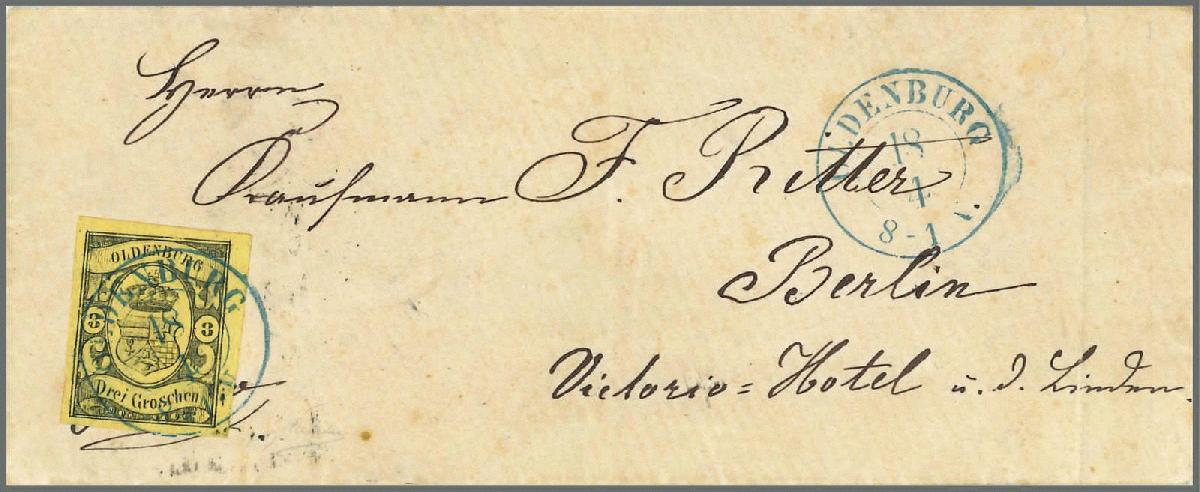 Herrn
Kaufmann F. Ritter
Berlin
Victoria=Hotel u. d. Linden.
OLDENBURG
18
4
8-1
OLDENBURG
3 3
Drei Groschen
OLDENBURG
18